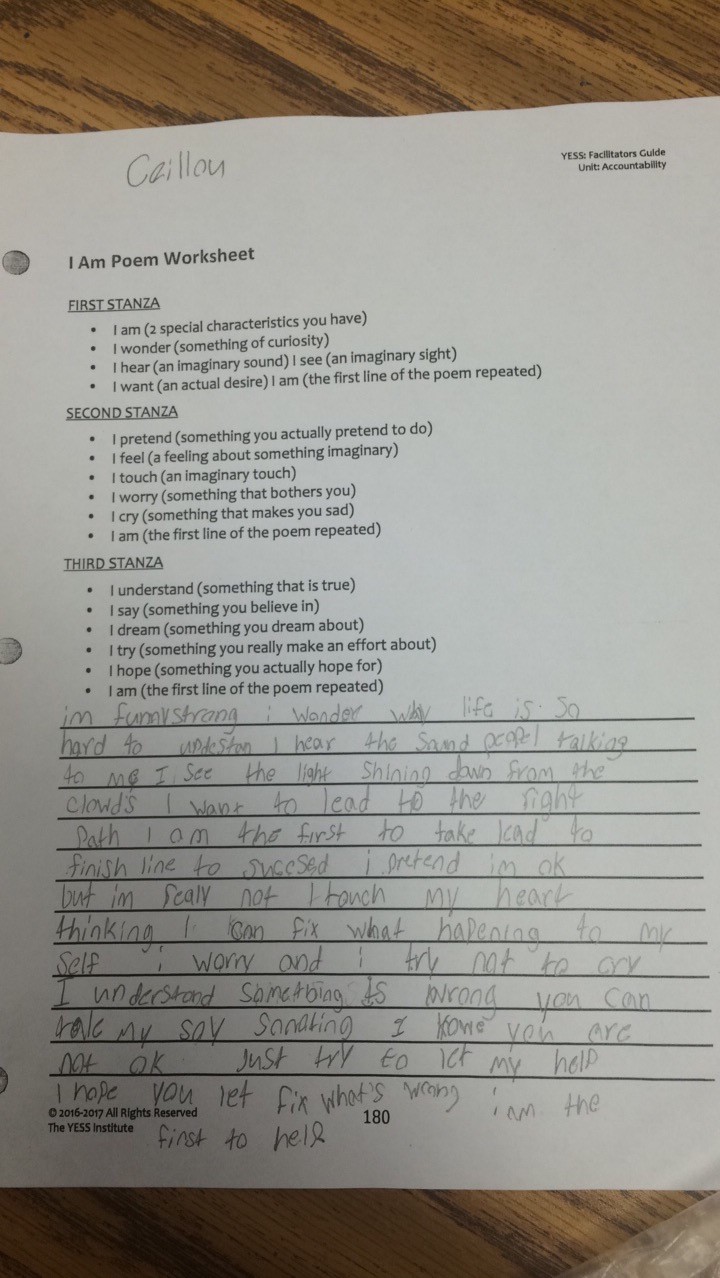 Caillou
YESS: Facilitators Guide
Unit: Accountability
I Am Poem Worksheet
FIRST STANZA
• I am (2 special characteristics you have)
• I wonder (something of curiosity)
• I hear (an imaginary sound) I see (an imaginary sight)
• I want (an actual desire) I am (the first line of the poem repeated)
SECOND STANZA
• I pretend (something you actually pretend to do)
• I feel (a feeling about something imaginary)
• I touch (an imaginary touch)
• I worry (something that bothers you)
• I cry (something that makes you sad)
• I am (the first line of the poem repeated)
THIRD STANZA
• I understand (something that is true)
• I say (something you believe in)
• I dream (something you dream about)
• I try (something you really make an effort about)
• I hope (something you actually hope for)
• I am (the first line of the poem repeated)
im funny strong i wonder why life is so
hard to undestan I hear the sound peopel talking
to me I see the light shining down from the
clowds I want to lead to the right
path I am the first to take lead to
finish line to succsed i pretend im ok
but im realy not I touch my heart
thinking I can fix what hapening to my
self i worry and i try not to cry
I understand something is wrong you can
my say I you are
not ok Just try to let my help
I hope you let fix what's wrong i am the
first to help
© 2016-2017 All Rights Reserved
The YESS Institute
180